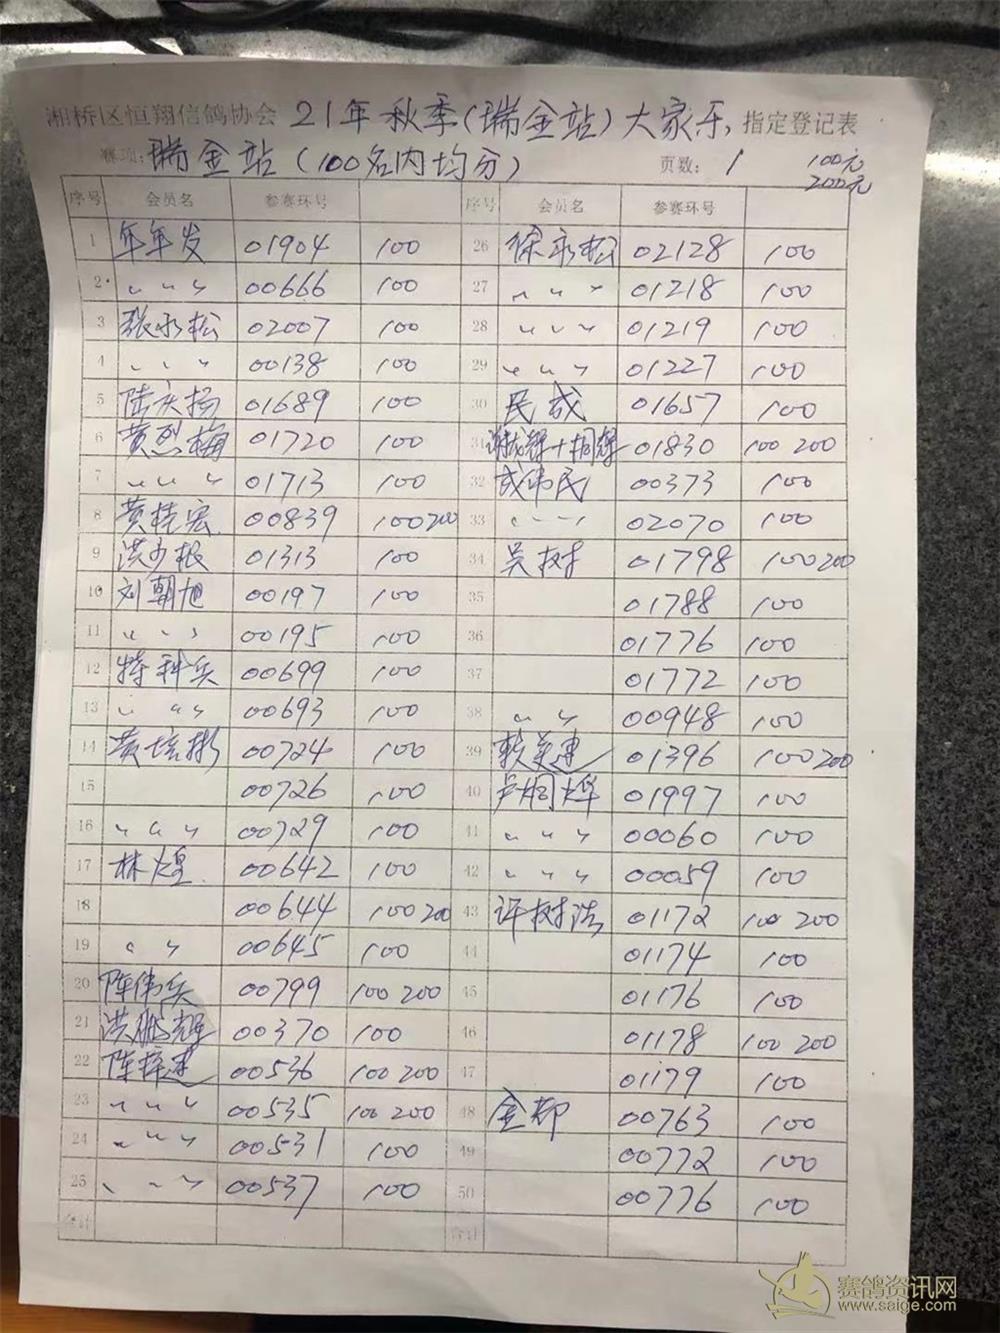 湘桥区恒翔信鸽协会 21年秋季(瑞金站)大家乐, 指定登记表
赛项: 瑞金站(100名内均分) 页数: 1 100元
200元
序号 会员名 参赛环号 序号 会员名 参赛环号
1 年年发 01904 100 26 徐永松 02128 100
2 〃 〃 〃 00666 100 27 〃 〃 〃 01218 100
3 张永松 02007 100 28 〃 〃 〃 01219 100
4 〃 〃 〃 00138 100 29 〃 〃 〃 01227 100
5 陆庆扬 01689 100 30 民成 01657 100
6 黄烈梅 01720 100 31 01830 100 200
7 〃 〃 〃 01713 100 32 成伟民 00373 100
8 黄桂宏 00839 100 200 33 〃 〃 〃 02070 100
9 洪少根 01313 100 34 吴树 01798 100 200
10 刘朝旭 00197 100 35 01788 100
11 〃 〃 〃 00195 100 36 01776 100
12 特种兵 00699 100 37 01772 100
13 〃 〃 〃 00693 100 38 〃 〃 00948 100
14 黄培彬 00724 100 39 赖英建 01396 100 200
15 00726 100 40 卢炯烽 01997 100
16 〃 〃 〃 00729 100 41 〃 〃 〃 00060 100
17 林煌 00642 100 42 〃 〃 〃 00059 100
18 00644 100 200 43 许树浩 01172 100 200
19 〃 〃 00645 100 44 01174 100
20 陈伟兵 00799 100 200 45 01176 100
21 洪鹏辉 00370 100 46 01178 100 200
22 陈梓建 00536 100 200 47 01179 100
23 〃 〃 〃 00535 100 200 48 金都 00763 100
24 〃 〃 〃 00531 100 49 00772 100
25 〃 〃 〃 00537 100 50 00776 100
合计 合计
赛鸽资讯网
www.saige.com